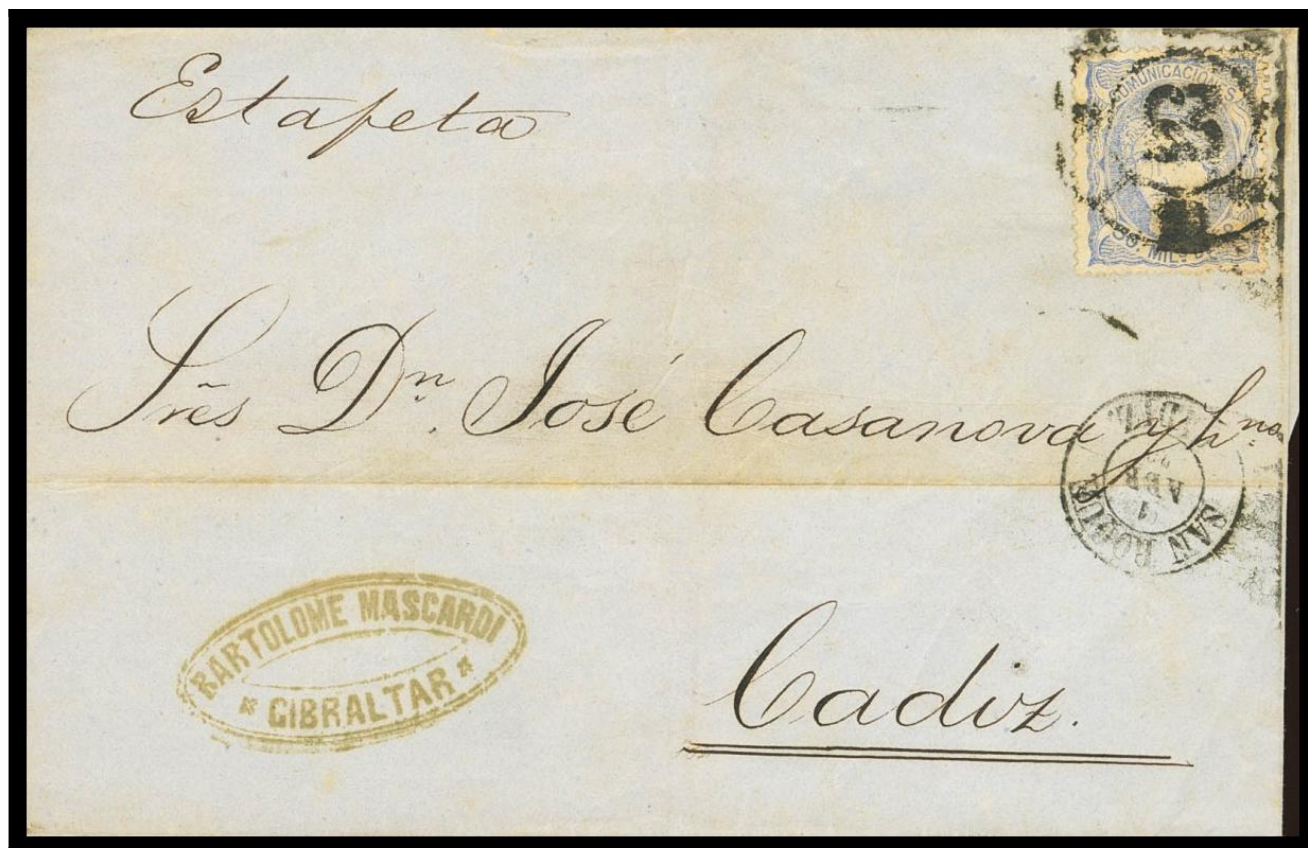 Estapeta
COMUNICACIONES
MILS
Sres Dn. José Casanova y hno
SAN ROQUE
ABR
BARTOLOME MASCARDI
* GIBRALTAR *
Cadiz.